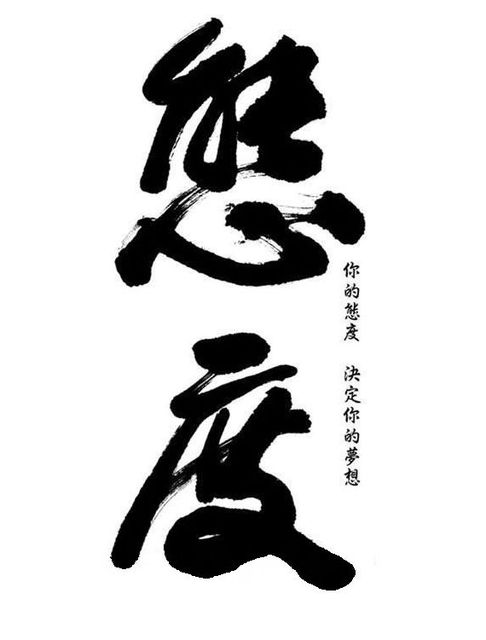 態度
你的態度 決定你的夢想